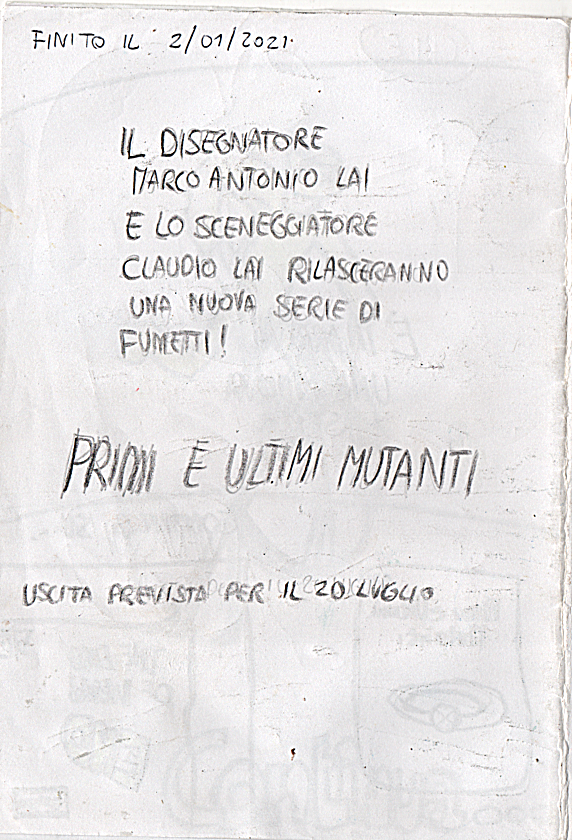 FINITO IL 2/01/2021.
IL DISEGNATORE
MARCO ANTONIO LAI
E LO SCENEGGIATORE
CLAUDIO LAI RILASCERANNO
UNA NUOVA SERIE DI
FUMETTI!
PRIMI E ULTIMI MUTANTI
USCITA PREVISTA PER IL 20 LUGLIO